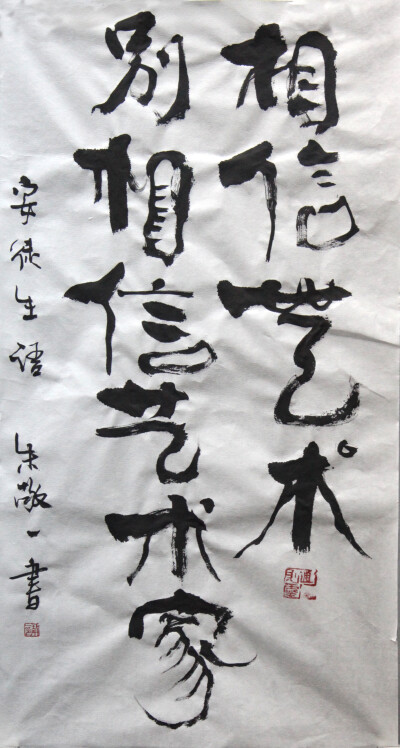 相信艺术
别相信艺术家
安徒生语 朱敬一书